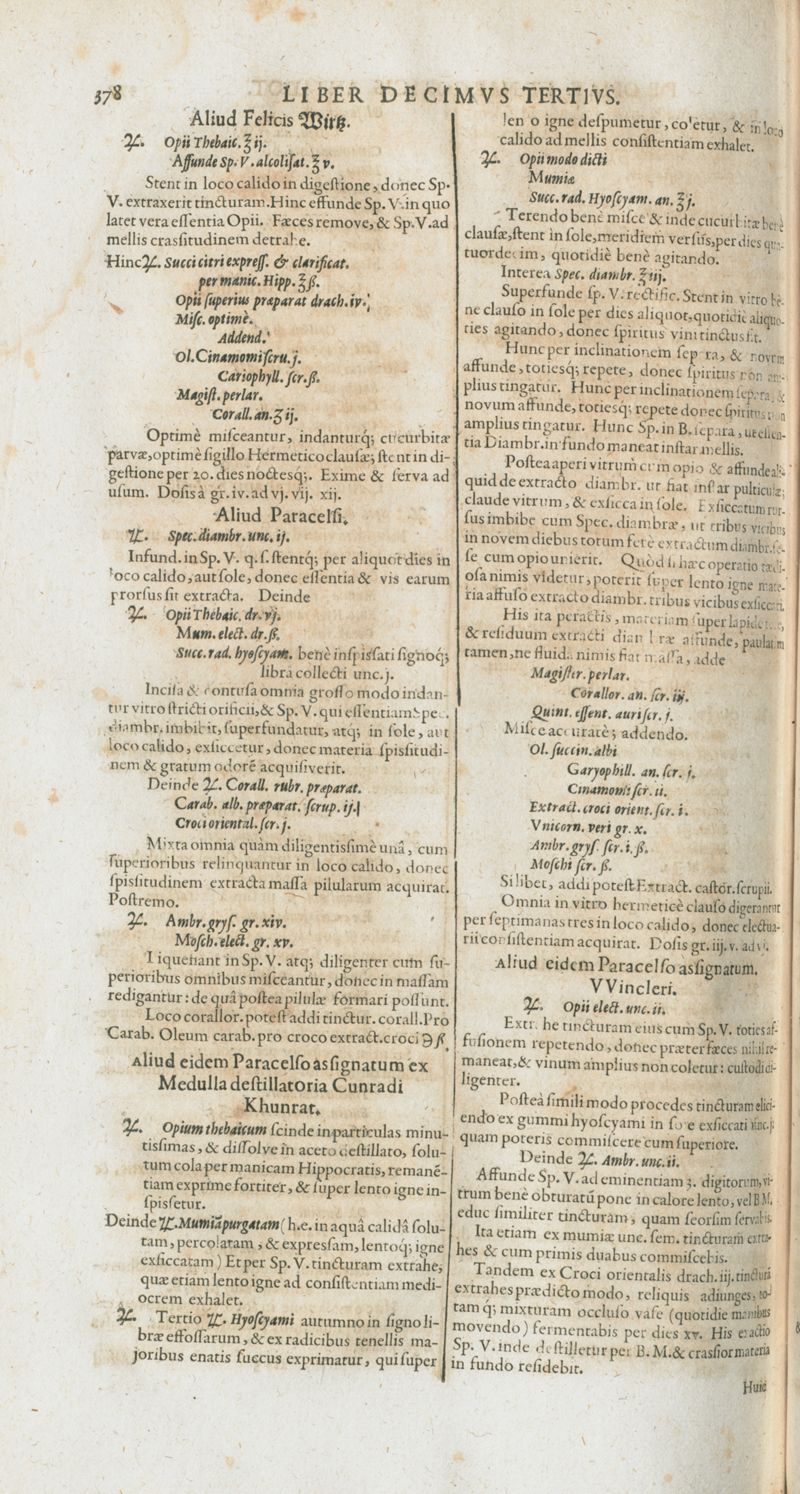 378 LIBER DECIMVS TERTIVS.
Aliud Felicis Wirtz.
℞. Opii Thebaic. ℥ ij.
Affunde Sp. V. alcoliſat. ℥ v.
Stent in loco calido in digeſtione, donec Sp.
V. extraxerit tincturam. Hinc effunde Sp. V. in quo
latet vera eſſentia Opii. Fæces remove, & Sp. V. ad
mellis crasſitudinem detrahe.
Hinc ℞. Succi citri expreſſ. & clarificat.
per manic. Hipp. ℥ ß.
Opii ſuperius præparat drach. iv.
Miſc. optimè.
Addend.
Ol. Cinamomi ſcru. j.
Cariophyll. ſcr. ß.
Magiſt. perlar.
Corall. an. ʒ ij.
Optimè miſceantur, indanturq; cucurbitæ
parvæ, optimè ſigillo Hermetico clauſæ; ſtent in di-
geſtione per 20. dies noctesq;. Exime & ſerva ad
uſum. Doſis à gr. iv. ad vj. vij. xij.
Aliud Paracelſi.
℞. Spec. diambr. unc. ij.
Infund. in Sp. V. q. ſ. ſtentq; per aliquot dies in
loco calido, aut ſole, donec eſſentia & vis earum
prorſus ſit extracta. Deinde
℞. Opii Thebaic. dr. vj.
Mum. elect. dr. ß.
Succ. rad. hyoſcyam. benè inſpisſati ſignoq;
libra collecti unc. j.
Inciſa & contuſa omnia groſſo modo indan-
tur vitro ſtricti orificii, & Sp. V. qui eſſentiam Spec.
diambr. imbibit, ſuperfundatur, atq; in ſole, aut
loco calido, exſiccetur, donec materia ſpisſitudi-
nem & gratum odorē acquiſiverit.
Deinde ℞. Corall. rubr. præparat.
Carab. alb. præparat. ſcrup. ij.
Croci oriental. ſcr. j.
Mixta omnia quàm diligentisſimè unâ, cum
ſuperioribus relinquantur in loco calido, donec
ſpisſitudinem extracta maſſa pilularum acquirat.
Poſtremo.
℞. Ambr. gryſ. gr. xiv.
Moſch. elect. gr. xv.
Liquefiant in Sp. V. atq; diligenter cum ſu-
perioribus omnibus miſceantur, donec in maſſam
redigantur: de quâ poſtea pilulæ formari poſſunt.
Loco corallor. poteſt addi tinctur. corall. Pro
Carab. Oleum carab. pro croco extract. croci ℈ ß.
Aliud eidem Paracelſo asſignatum ex
Medulla deſtillatoria Cunradi
Khunrat.
℞. Opium thebaicum ſcinde in particulas minu-
tisſimas, & diſſolve in aceto deſtillato, ſolu-
tum cola per manicam Hippocratis, remanē-
tiam exprime fortiter, & ſuper lento igne in-
ſpisſetur.
Deinde ℞. Mumiā purgatam (h. e. in aquâ calidâ ſolu-
tam, percolatam, & expresſam, lentoq; igne
exſiccatam) Et per Sp. V. tincturam extrahe,
quæ etiam lento igne ad conſiſtentiam medi-
ocrem exhalet.
℞. Tertio ℞. Hyoſcyami autumno in ſigno li-
bræ effoſſarum, & ex radicibus tenellis ma-
joribus enatis ſuccus exprimatur, qui ſuper
len o igne deſpumetur, coletur, & in loco
calido ad mellis conſiſtentiam exhalet.
℞. Opii modo dicti
Mumiæ
Succ. rad. Hyoſcyam. an. ℥ j.
Terendo benè miſce & inde cucurbitæ benè
clauſæ, ſtent in ſole, meridiem verſus, per dies qua-
tuordecim, quotidiè benè agitando.
Interea Spec. diambr. ℥ iij.
Superfunde ſp. V. rectific. Stent in vitro be-
ne clauſo in ſole per dies aliquot, quotidie aliquo-
ties agitando, donec ſpiritus vini tinctus ſit.
Hunc per inclinationem ſepara, & novum
affunde, totiesq; repete, donec ſpiritus non am-
plius tingatur. Hunc per inclinationem ſepara, &
novum affunde, totiesq; repete donec ſpiritus non
amplius tingatur. Hunc Sp. in B. ſepara, ut eſſen-
tia Diambr. in fundo maneat inſtar mellis.
Poſtea aperi vitrum cum opio & affunde ali-
quid de extracto diambr. ut fiat inſtar pulticulæ;
claude vitrum, & exſicca in ſole. Exſiccatum rur-
ſus imbibe cum Spec. diambræ, ut tribus vicibus
in novem diebus totum ferè extractum diambr. ſe-
ſe cum opio unierit. Quòd ſi hæc operatio tædi-
oſa nimis videtur, poterit ſuper lento igne mate-
ria affuſo extracto diambr. tribus vicibus exſiccari.
His ita peractis, materiam ſuper lapidem
& reſiduum extracti diambræ affunde, paulatim
tamen, ne fluida nimis fiat maſſa, adde
Magiſter. perlar.
Corallor. an. ſcr. iij.
Quint. eſſent. auri ſcr. j.
Miſce accuratè; addendo.
Ol. ſuccin. albi
Garyophill. an. ſcr. j.
Cinamomi ſcr. ii.
Extract. croci orient. ſcr. i.
Vnicorn. veri gr. x.
Ambr. gryſ. ſcr. i. ß.
Moſchi ſcr. ß.
Si libet, addi poteſt Extract. caſtor. ſcrup ii.
Omnia in vitro hermeticè clauſo digerantur
per ſeptimanas tres in loco calido, donec electua-
rii conſiſtentiam acquirat. Doſis gr. iij. v. ad vi.
Aliud eidem Paracelſo asſignatum,
VVincleri.
℞. Opii elect. unc. ii.
Extrahe tincturam eius cum Sp. V. toties af-
fuſionem repetendo, donec præter fæces nihil re-
maneat, & vinum amplius non coletur: cuſtodi di-
ligenter.
Poſteà ſimili modo procedes tincturam elici-
endo ex gummi hyoſcyami in ſole exſiccati unc. j.
quam poteris commiſcere cum ſuperiore.
Deinde ℞. Ambr. unc. ii.
Affunde Sp. V. ad eminentiam 3. digitorum, vi-
trum benè obturatū pone in calore lento, vel B. M.
educ ſimiliter tincturam, quam ſeorſim ſervabis.
Ita etiam ex mumiæ unc. ſem. tincturam extra-
hes & cum primis duabus commiſcebis.
Tandem ex Croci orientalis drach. iij. tincturā
extrahes prædicto modo, reliquis adiunges, to-
tam q; mixturam occluſo vaſe (quotidie manibus
movendo) fermentabis per dies xv. His exactio
Sp. V. inde deſtilletur per B. M. & crasſior materia
in fundo reſidebit.
Huic